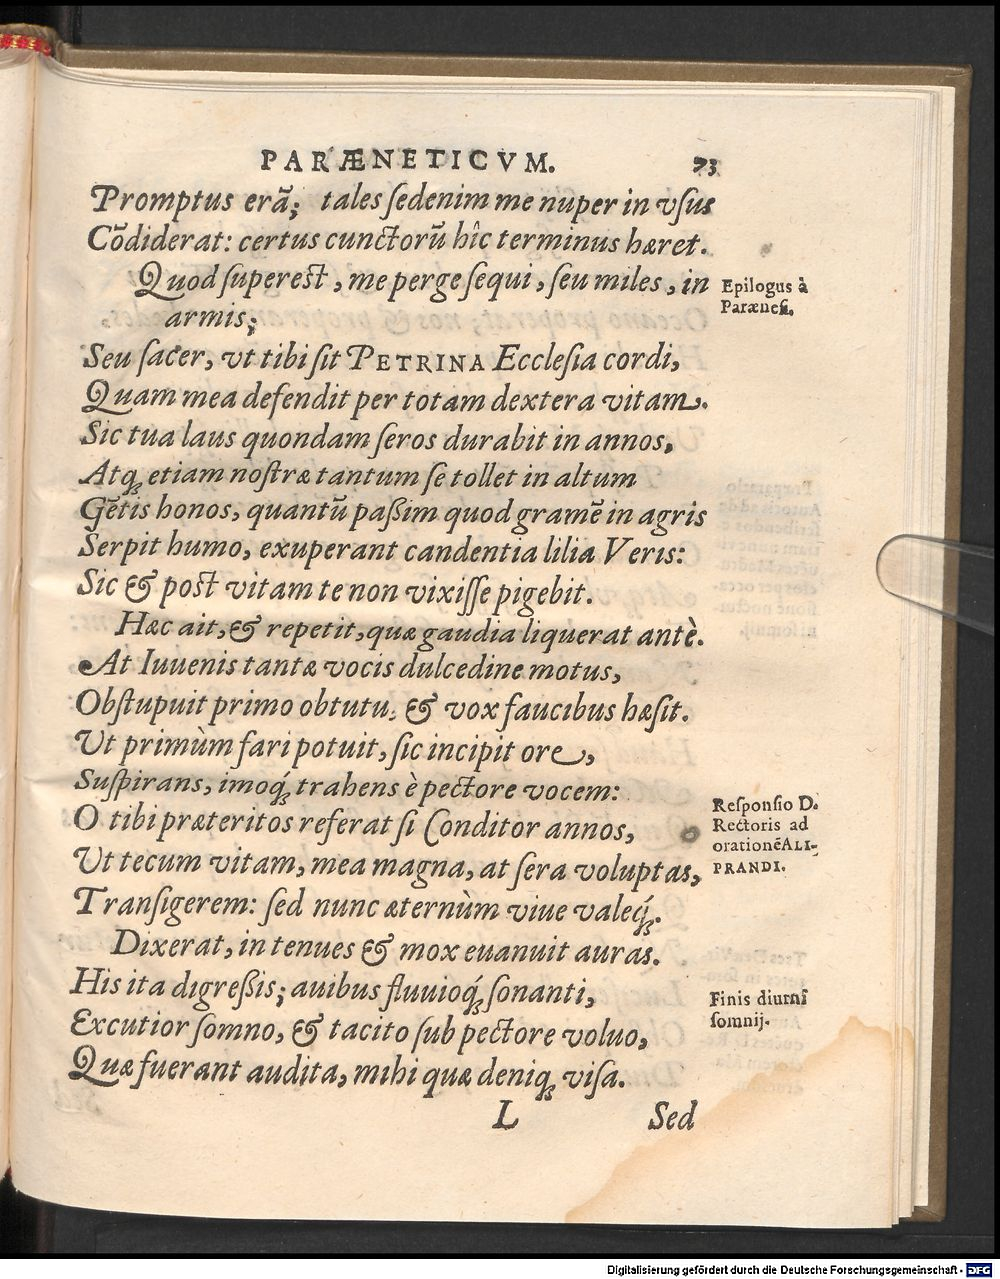 PARÆNETICVM. 73
Promptus erã; tales sedenim me nuper in vsus
Cõdiderat: certus cunctorũ hîc terminus hæret.
Quod superest, me perge sequi, seu miles, in
armis;
Epilogus à
Parænesi.
Seu sacer, vt tibi sit PETRINA Ecclesia cordi,
Quam mea defendit per totam dextera vitam.
Sic tua laus quondam seros durabit in annos,
Atq; etiam nostræ tantum se tollet in altum
Gẽtis honos, quantũ paßim quod gramẽ in agris
Serpit humo, exuperant candentia lilia Veris:
Sic & post vitam te non vixisse pigebit.
Hæc ait, & repetit, quæ gaudia liquerat antè.
At Iuuenis tantæ vocis dulcedine motus,
Obstupuit primo obtutu, & vox faucibus hæsit.
Ut primùm fari potuit, sic incipit ore,
Suspirans, imoq́; trahens è pectore vocem:
O tibi præteritos referat si Conditor annos,
Responsio D.
Rectoris ad
orationẽ ALI-
PRANDI.
Ut tecum vitam, mea magna, at sera voluptas,
Transigerem: sed nunc æternùm viue valeq́;.
Dixerat, in tenues & mox euanuit auras.
His ita digreßis; auibus fluuioq́; sonanti,
Finis diurni
somnij.
Excutior somno, & tacito sub pectore voluo,
Quæ fuerant audita, mihi quæ deniq; visa.
L Sed
Digitalisierung gefördert durch die Deutsche Forschungsgemeinschaft - DFG